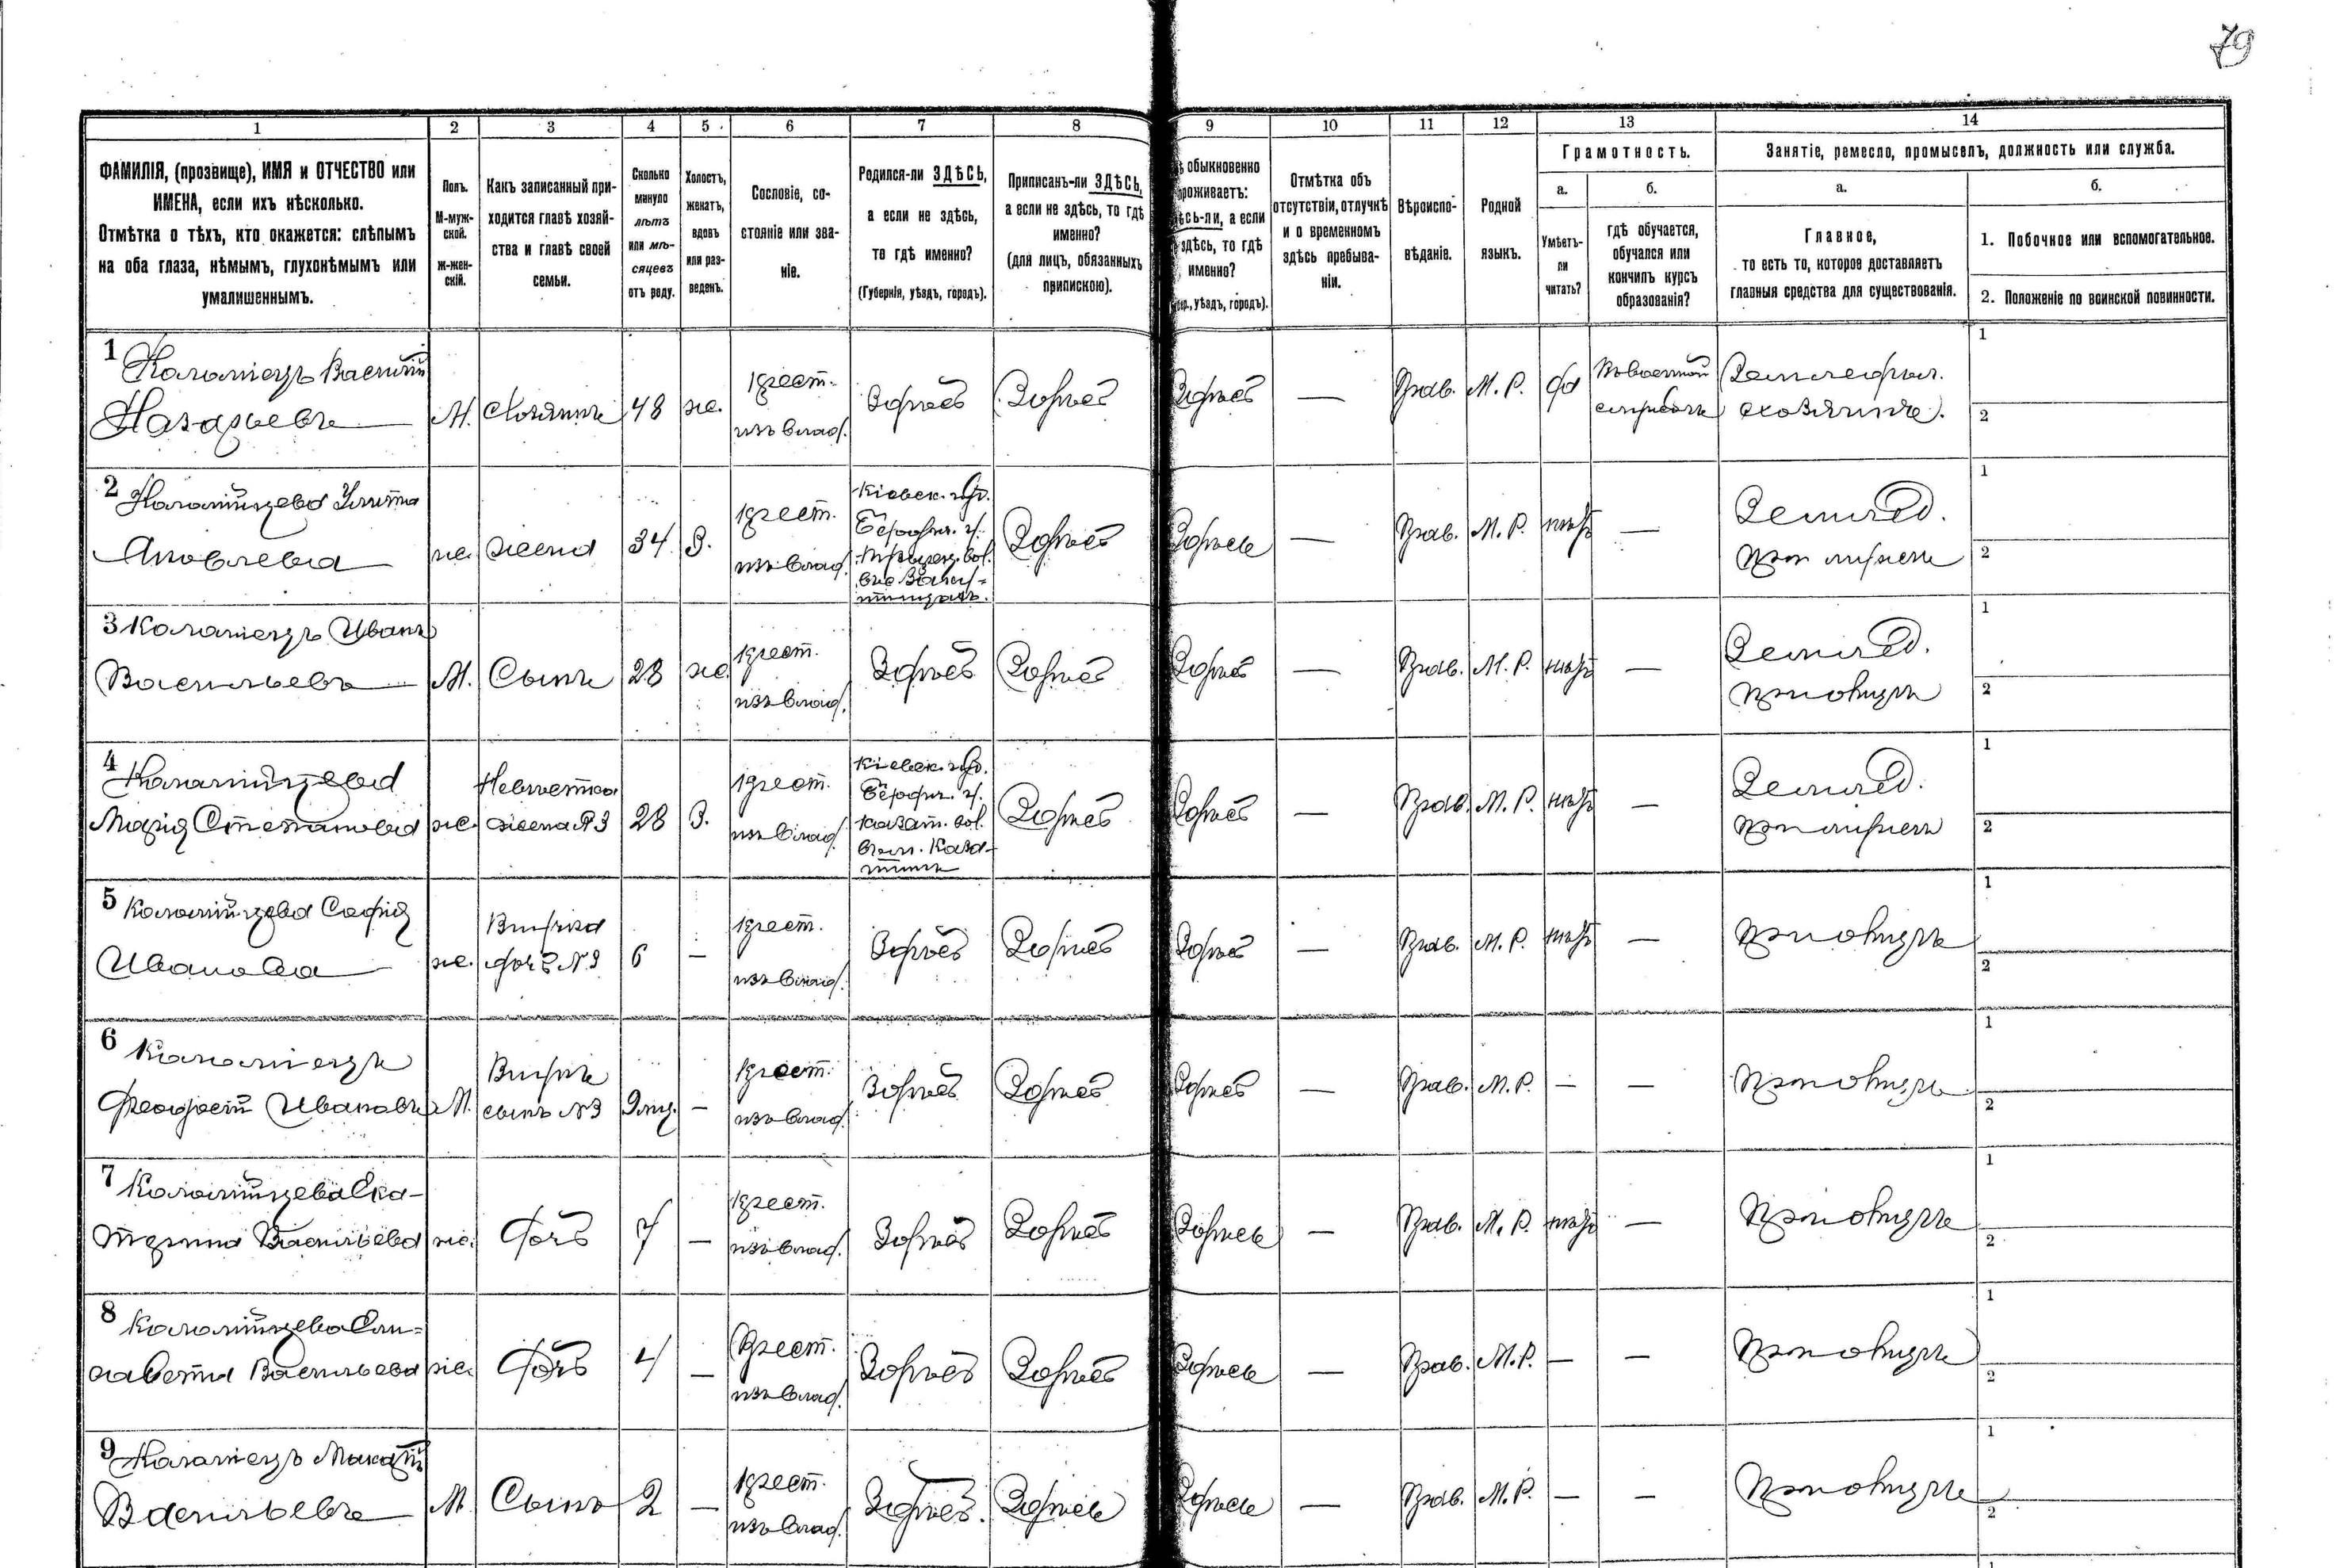 79
1 2 3 4 5 6 7 8 9 10 11 12 13 14
ФАМИЛІЯ, (прозвище), ИМЯ и ОТЧЕСТВО или
ИМЕНА, если ихъ нѣсколько.
Отмѣтка о тѣхъ, кто окажется: слѣпымъ
на оба глаза, нѣмымъ, глухонѣмымъ или
умалишеннымъ.
Полъ.
М-муж-
ской.
Ж-жен-
скій.
Какъ записанный при-
ходится главѣ хозяй-
ства и главѣ своей
семьи.
Сколько
минуло
лѣтъ
или мѣ-
сяцевъ
отъ роду.
Холостъ,
женатъ,
вдовъ
или раз-
веденъ.
Сословіе, со-
стояніе или зва-
ніе.
Родился-ли ЗДѢСЬ,
а если не здѣсь,
то гдѣ именно?
(Губернія, уѣздъ, городъ).
Приписанъ-ли ЗДѢСЬ,
а если не здѣсь, то гдѣ
именно?
(для лицъ, обязанныхъ
припискою).
обыкновенно
проживаетъ:
здѣсь-ли, а если
здѣсь, то гдѣ
именно?
уѣздъ, городъ).
Отмѣтка объ
отсутствіи, отлучкѣ
и о временномъ
здѣсь пребыва-
ніи.
Вѣроиспо-
вѣданіе.
Родной
языкъ.
Грамотность.
а.
Умѣетъ-
ли
читать?
б.
гдѣ обучается,
обучался или
кончилъ курсъ
образованія?
Занятіе, ремесло, промыселъ, должность или служба.
а.
Главное,
то есть то, которое доставляетъ
главныя средства для существованія.
б.
1. Побочное или вспомогательное.
2. Положеніе по воинской повинности.
1 Коломіецъ Василій
Назарьевъ
М. хозяинъ 48 ж. крест. изъ влад. Здѣсь Здѣсь Здѣсь — Прав. М. Р. да
Земледѣл.
хозяинъ.
1
2
2 Коломійцева Улита
Яковлева
ж. жена 34 З. крест. изъ влад.
Кіевск. губ.
Бердич. у.
Здѣсь Здѣсь — Прав. М. Р. нѣтъ —
Землед.
при мужѣ
1
2
3 Коломіецъ Иванъ
Васильевъ
М. Сынъ 28 ж. крест. изъ влад. Здѣсь Здѣсь Здѣсь — Прав. М. Р. нѣтъ —
Землед.
при отцѣ
1
2
4 Коломійцева
Марія Степанова
ж. Невѣстка жена №3 28 З. крест. изъ влад.
Кіевск. губ.
Бердич. у.
Казат. вол.
Здѣсь Здѣсь — Прав. М. Р. нѣтъ —
Землед.
при мужѣ
1
2
5 Коломійцева Софія
Иванова
ж. Внучка дочь №3 6 — крест. изъ влад. Здѣсь Здѣсь Здѣсь — Прав. М. Р. нѣтъ —
при отцѣ
1
2
6 Коломіецъ
Ивановъ
М. Внукъ сынъ №3 9 мц. — крест. изъ влад. Здѣсь Здѣсь Здѣсь — Прав. М. Р. — —
при отцѣ
1
2
7 Коломійцева Ека-
терина Васильева
ж. дочь 7 — крест. изъ влад. Здѣсь Здѣсь Здѣсь — Прав. М. Р. нѣтъ —
при отцѣ
1
2
8 Коломійцева Ели-
завета Васильева
ж. дочь 4 — крест. изъ влад. Здѣсь Здѣсь Здѣсь — Прав. М. Р. — —
при отцѣ
1
2
9 Коломіецъ
Васильевъ
М. Сынъ 2 — крест. изъ влад. Здѣсь Здѣсь Здѣсь — Прав. М. Р. — —
при отцѣ
2